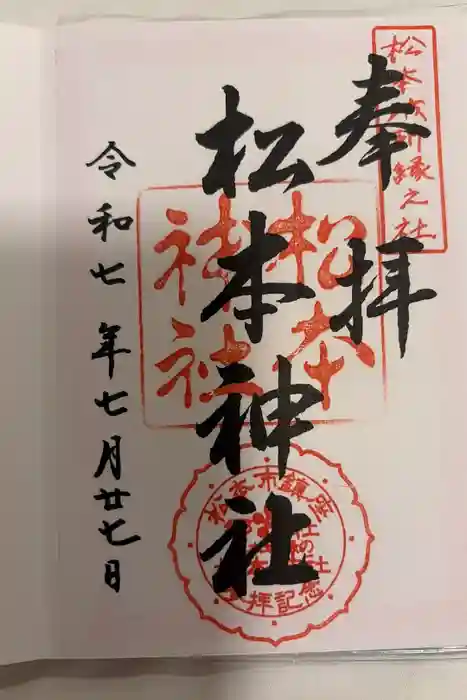 奉拝
松本城所縁之社
松本神社
松本
神社
松本市鎮座
参拝記念
令和七年七月廿七日